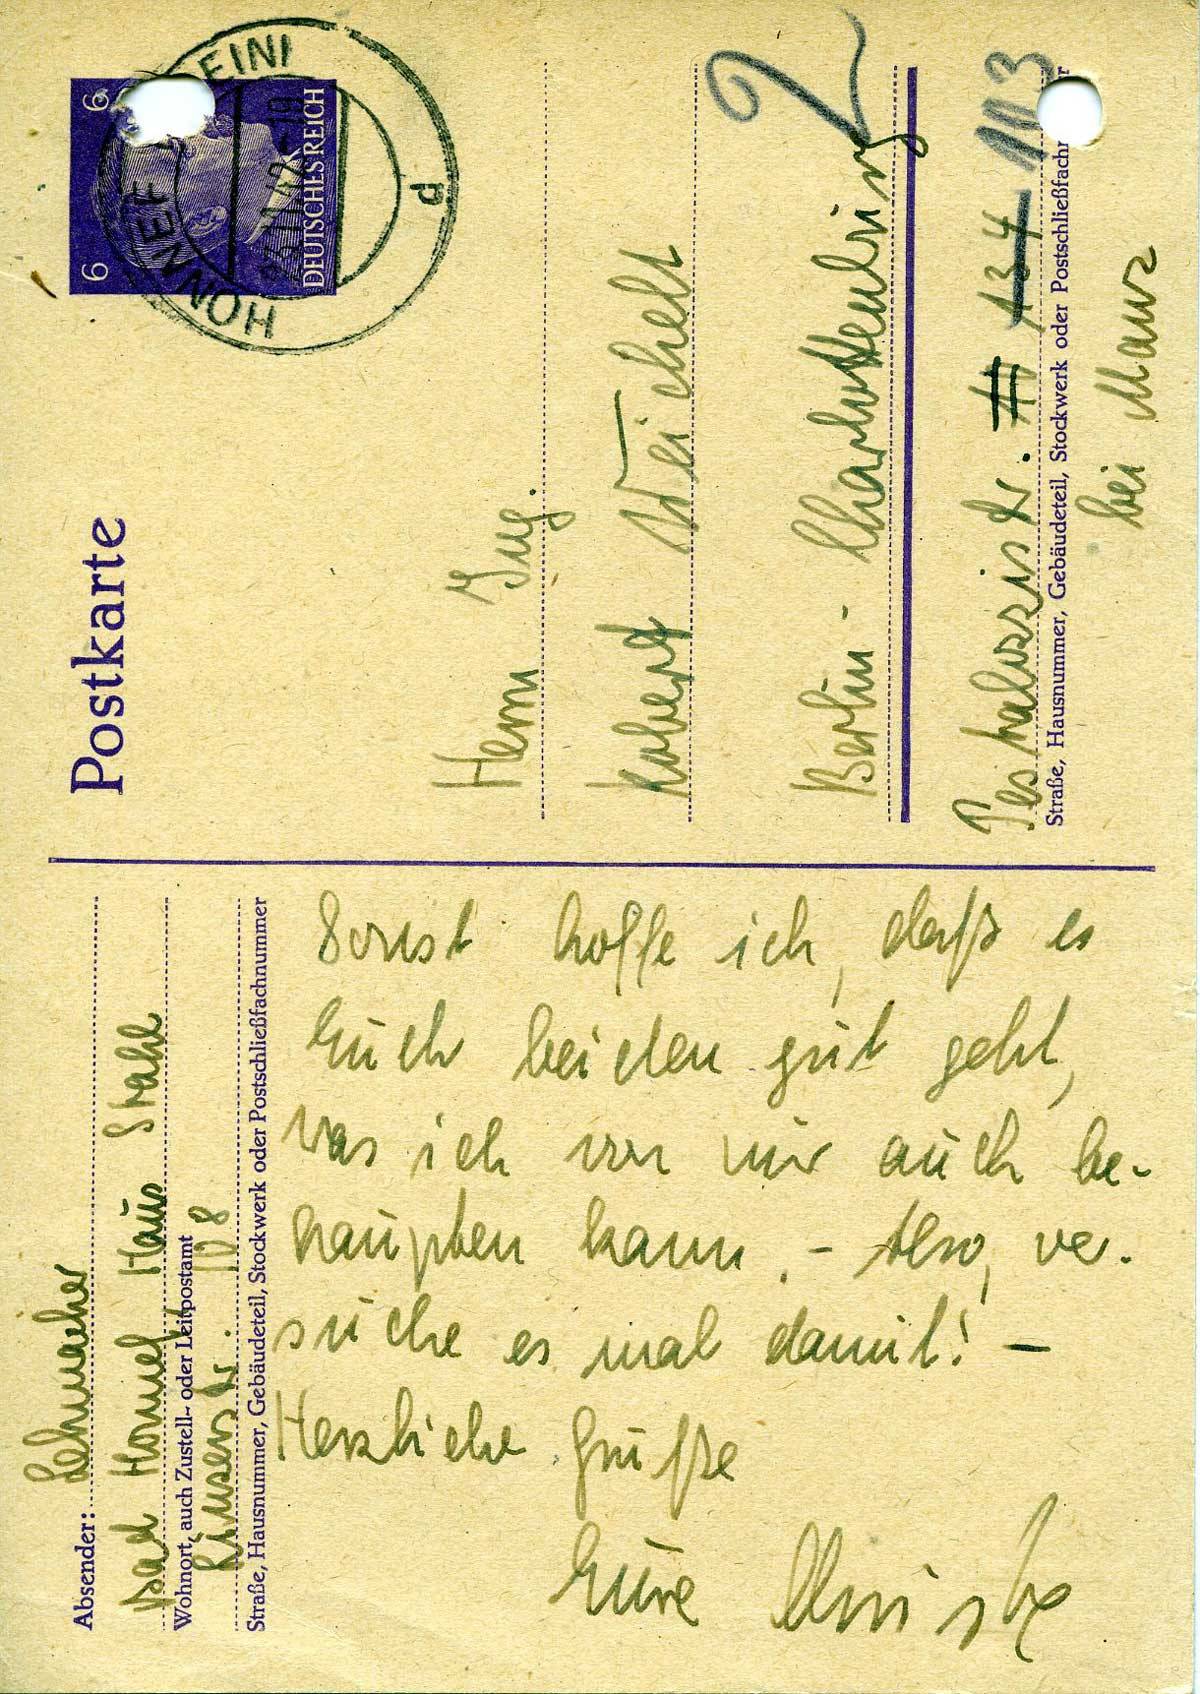 Absender: Lehmacher
Bad Honnef Haus Strahl
Wohnort, auch Zustell- oder Leitpostamt
Linzerstr. 108
Straße, Hausnummer, Gebäudeteil, Stockwerk oder Postschließfachnummer
Sonst hoffe ich, daß es
Euch beiden gut geht,
was ich von mir auch be-
haupten kann. - Also, ver-
suche es mal damit! -
Herzliche Grüße
Eure
Postkarte
6 6
DEUTSCHES REICH
HONNEF
d
Herrn Ing.
Robert Weichelt
2
Berlin - Charlottenburg
Pestalozzistr. 134 103
Straße, Hausnummer, Gebäudeteil, Stockwerk oder Postschließfachnummer
bei Manz